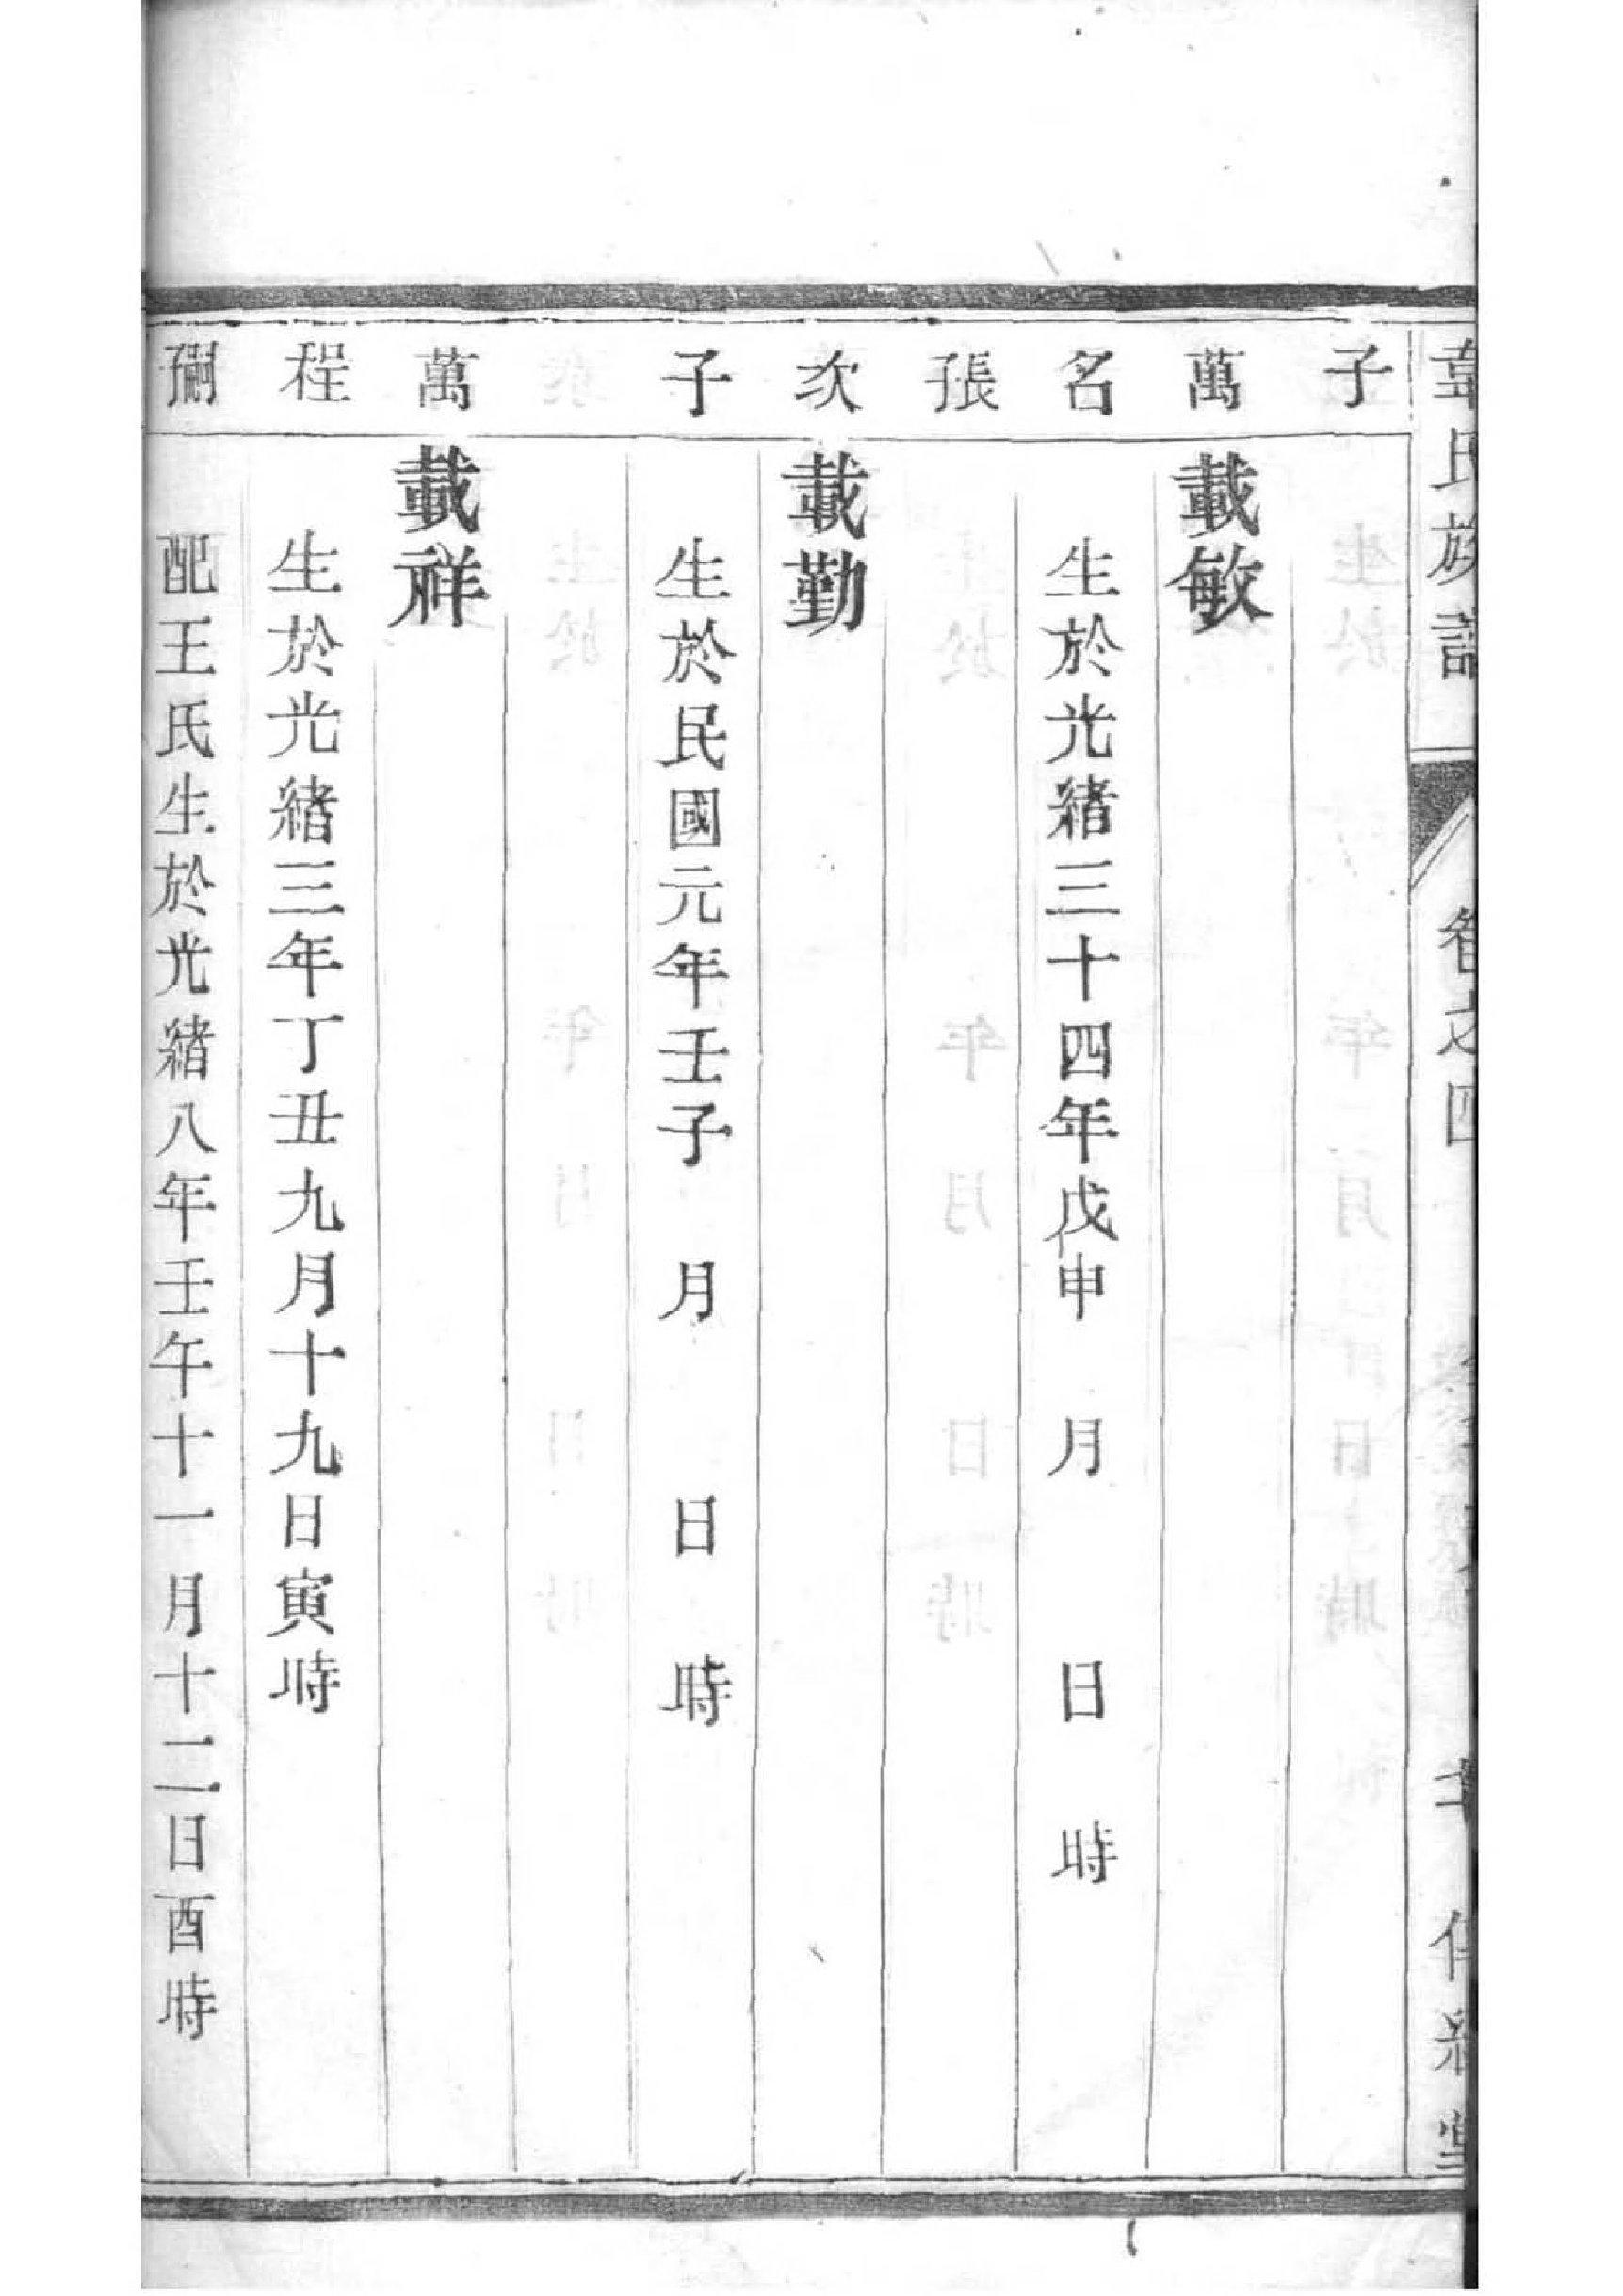 韋氏族譜
之四
子
萬 載敏
名 生於光緒三十四年戊申 月 日 時
張
次 載勤
子 生於民國元年壬子 月 日 時
萬 載祥
程 生於光緒三年丁丑九月十九日寅時
配王氏生於光緒八年壬午十一月十二日酉時